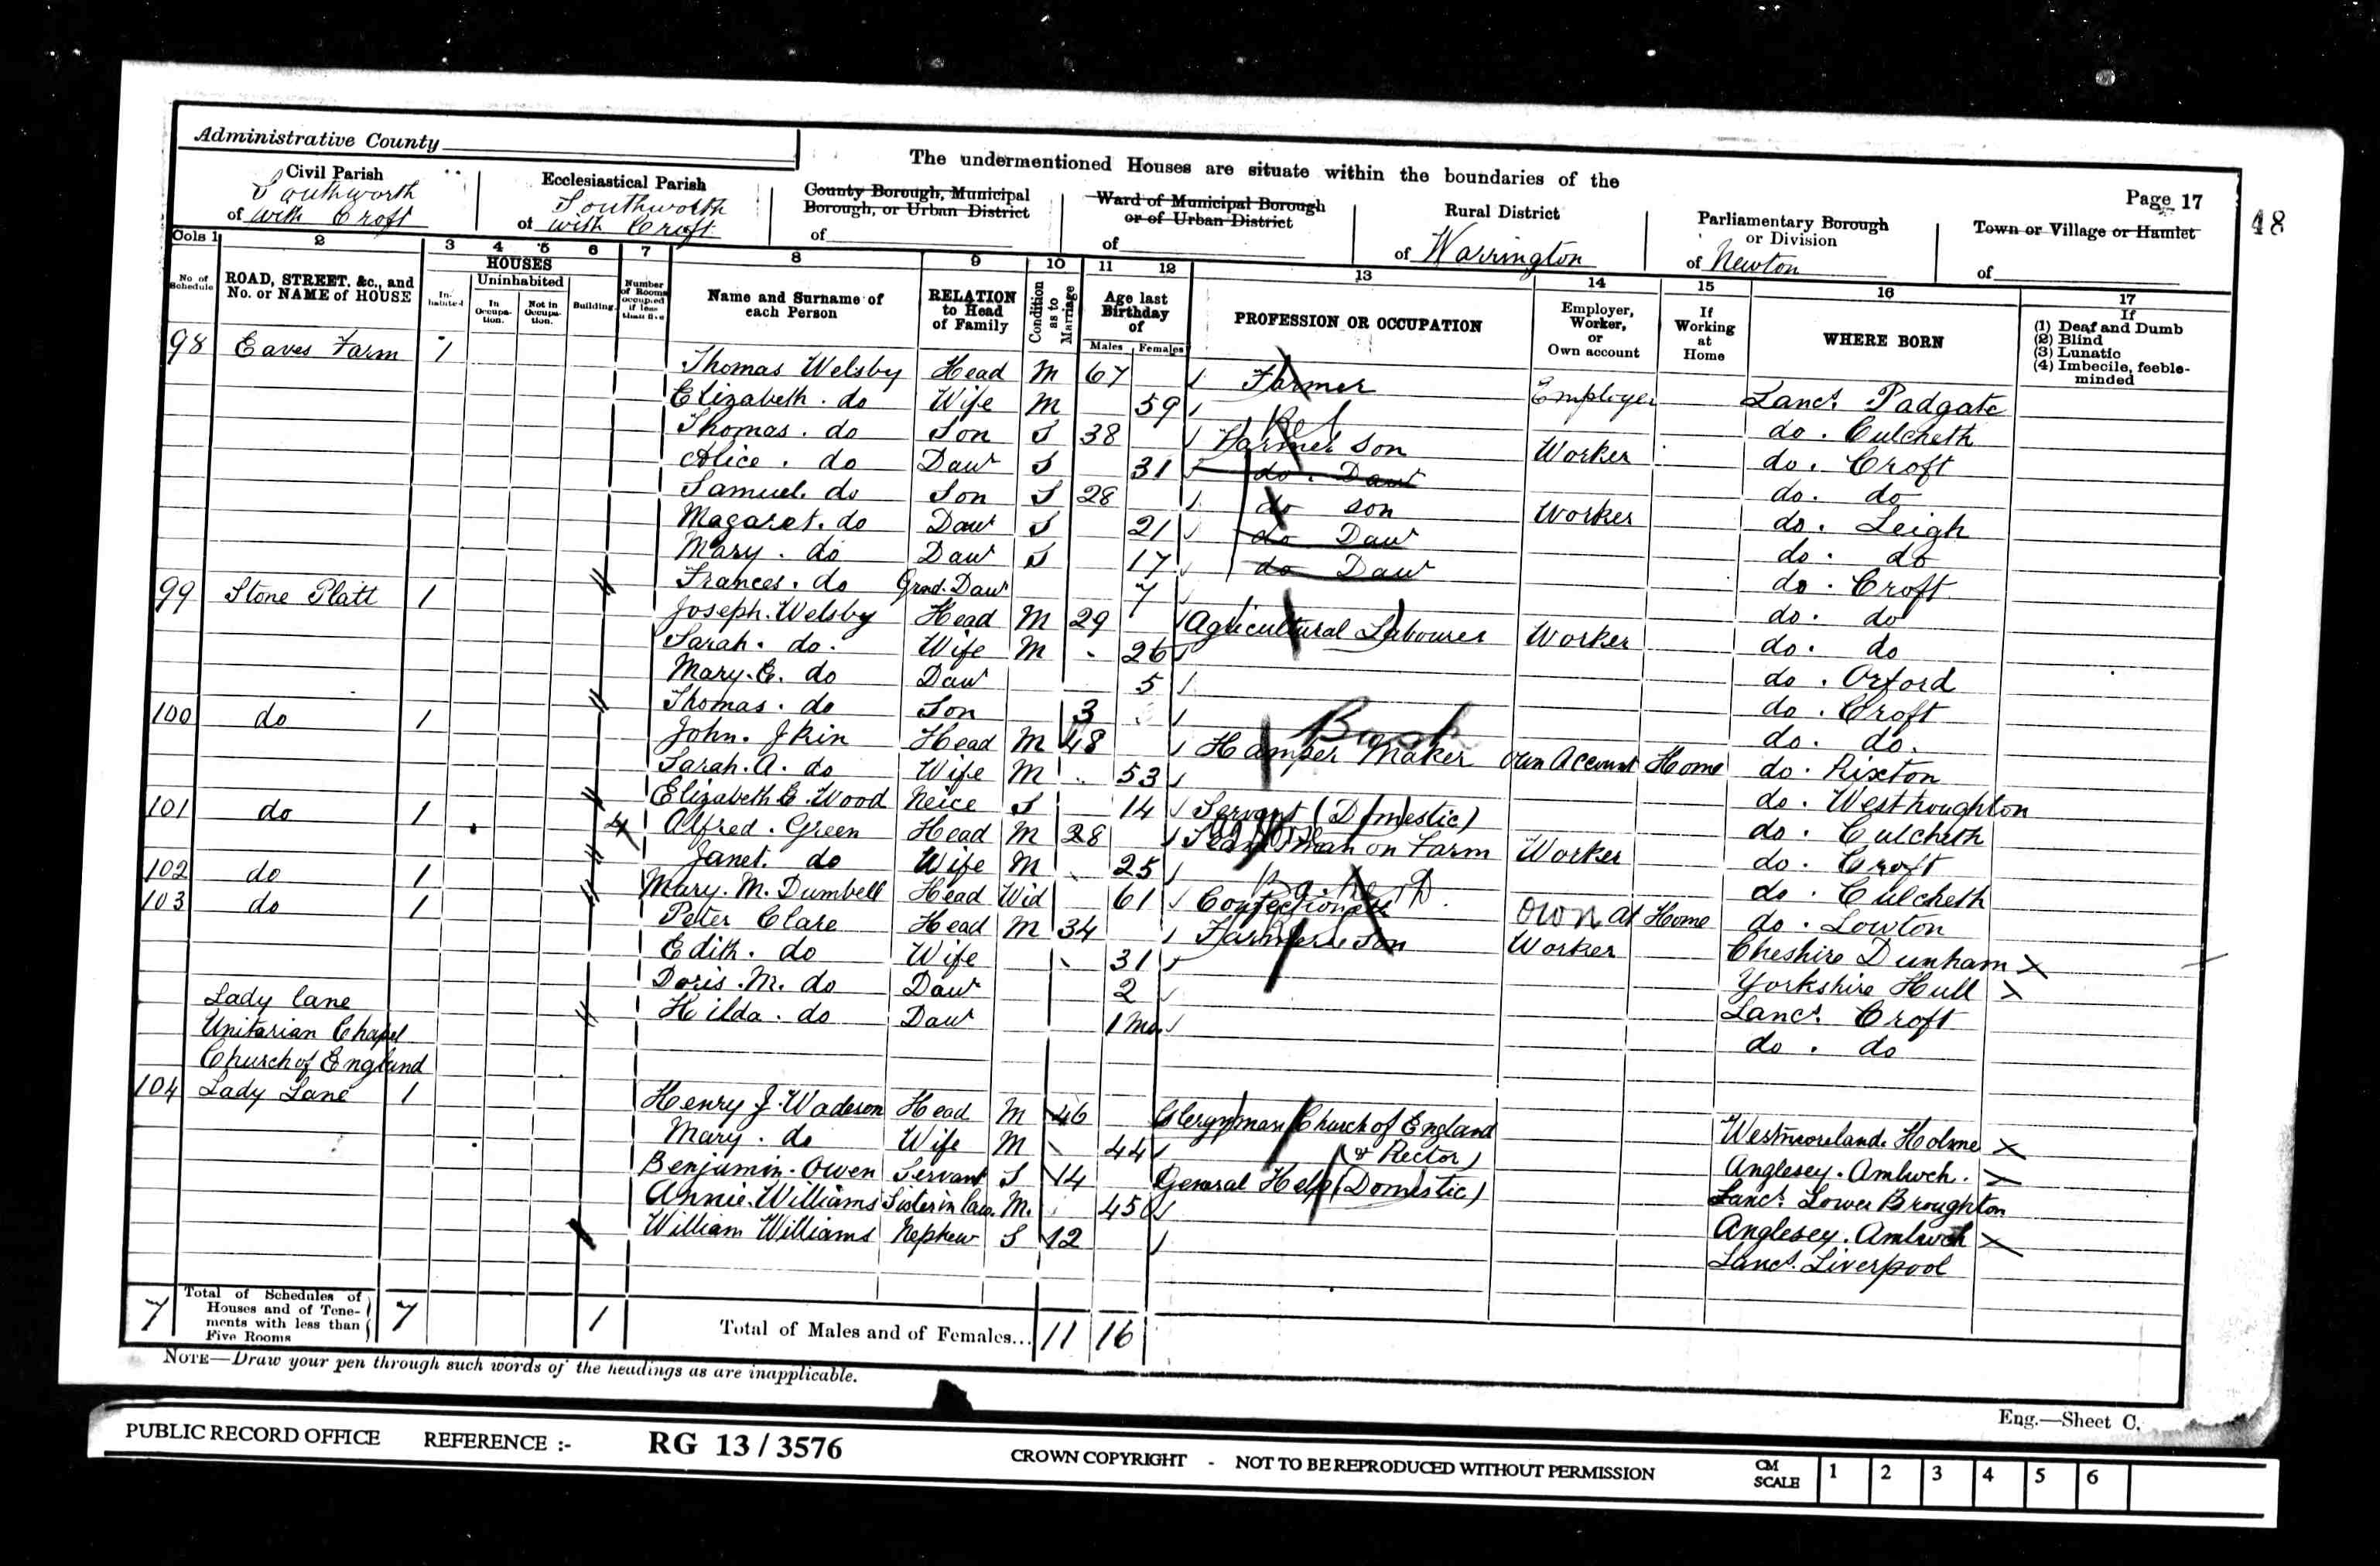 Administrative County
The undermentioned Houses are situate within the boundaries of the
Page 17
48
Civil Parish of Southworth with Croft
Ecclesiastical Parish of Southworth with Croft
County Borough, Municipal Borough, or Urban District of
Ward of Municipal Borough or of Urban District of
Rural District of Warrington
Parliamentary Borough or Division of Newton
Town or Village or Hamlet of
Cols 1 2 3 4 5 6 7 8 9 10 11 12 13 14 15 16 17
No. of Schedule
ROAD, STREET, &c., and No. or NAME of HOUSE
HOUSES
Inhabited
Uninhabited
In Occupation.
Not in Occupation.
Building.
Number of Rooms occupied if less than five
Name and Surname of each Person
RELATION to Head of Family
Condition as to Marriage
Age last Birthday of
Males Females
PROFESSION OR OCCUPATION
Employer, Worker, or Own account
If Working at Home
WHERE BORN
If
(1) Deaf and Dumb
(2) Blind
(3) Lunatic
(4) Imbecile, feeble-minded
98 Eaves Farm 1 Thomas Welsby Head M 67 Farmer Employer Lancs. Padgate
Elizabeth. do Wife M 59 do. Culcheth
Thomas. do Son S 38 Farmer Son Worker do. Croft
Alice. do Daur S 31 do. Daur do. do
Samuel. do Son S 28 do son Worker do. Leigh
Magaret. do Daur S 21 do Daur do. do
Mary. do Daur S 17 do Daur do. Croft
Frances. do Grnd. Daur 7 do. do
99 Stone Platt 1 Joseph. Welsby Head M 29 Agricultural Labourer Worker do. do
Sarah. do. Wife M 26 do. Orford
Mary. E. do Daur 5 do. Croft
Thomas. do Son 3 do. do.
100 do 1 John. Jkin Head M 48 Hamper Maker Own Account Home do. Rixton
Sarah. A. do Wife M 53 do. Westhoughton
Elizabeth E. Wood Neice S 14 Servant (Domestic) do. Culcheth
101 do 1 4 Alfred. Green Head M 28 man on Farm Worker do. Croft
Janet. do Wife M 25 do. Culcheth
102 do 1 Mary. M. Dumbell Head Wid 61 Confectioner Own At Home do. Lowton
103 do 1 Peter Clare Head M 34 Farmers Son Worker Cheshire Dunham X
Edith. do Wife 31 Yorkshire Hull X
Doris. M. do Daur 2 Lancs. Croft
Lady lane Hilda. do Daur 1 mo. do. do
Unitarian Chapel
Church of England
104 Lady Lane 1 Henry J. Wadeson Head M 46 Clergyman Church of England (& Rector) Westmoreland. Holme X
Mary. do Wife M 44 Anglesey. Amlwch. X
Benjamin. Owen Servant S 14 General Help (Domestic) Lancs. Lower Broughton
Annie. Williams Sister in law. M. 45 Anglesey. Amlwch X
William Williams Nephew S 12 Lancs. Liverpool
7 Total of Schedules of Houses and of Tenements with less than Five Rooms 7 1 Total of Males and of Females... 11 16
NOTE—Draw your pen through such words of the headings as are inapplicable.
Eng.—Sheet C.
PUBLIC RECORD OFFICE REFERENCE :- RG 13 / 3576 CROWN COPYRIGHT - NOT TO BE REPRODUCED WITHOUT PERMISSION CM SCALE 1 2 3 4 5 6